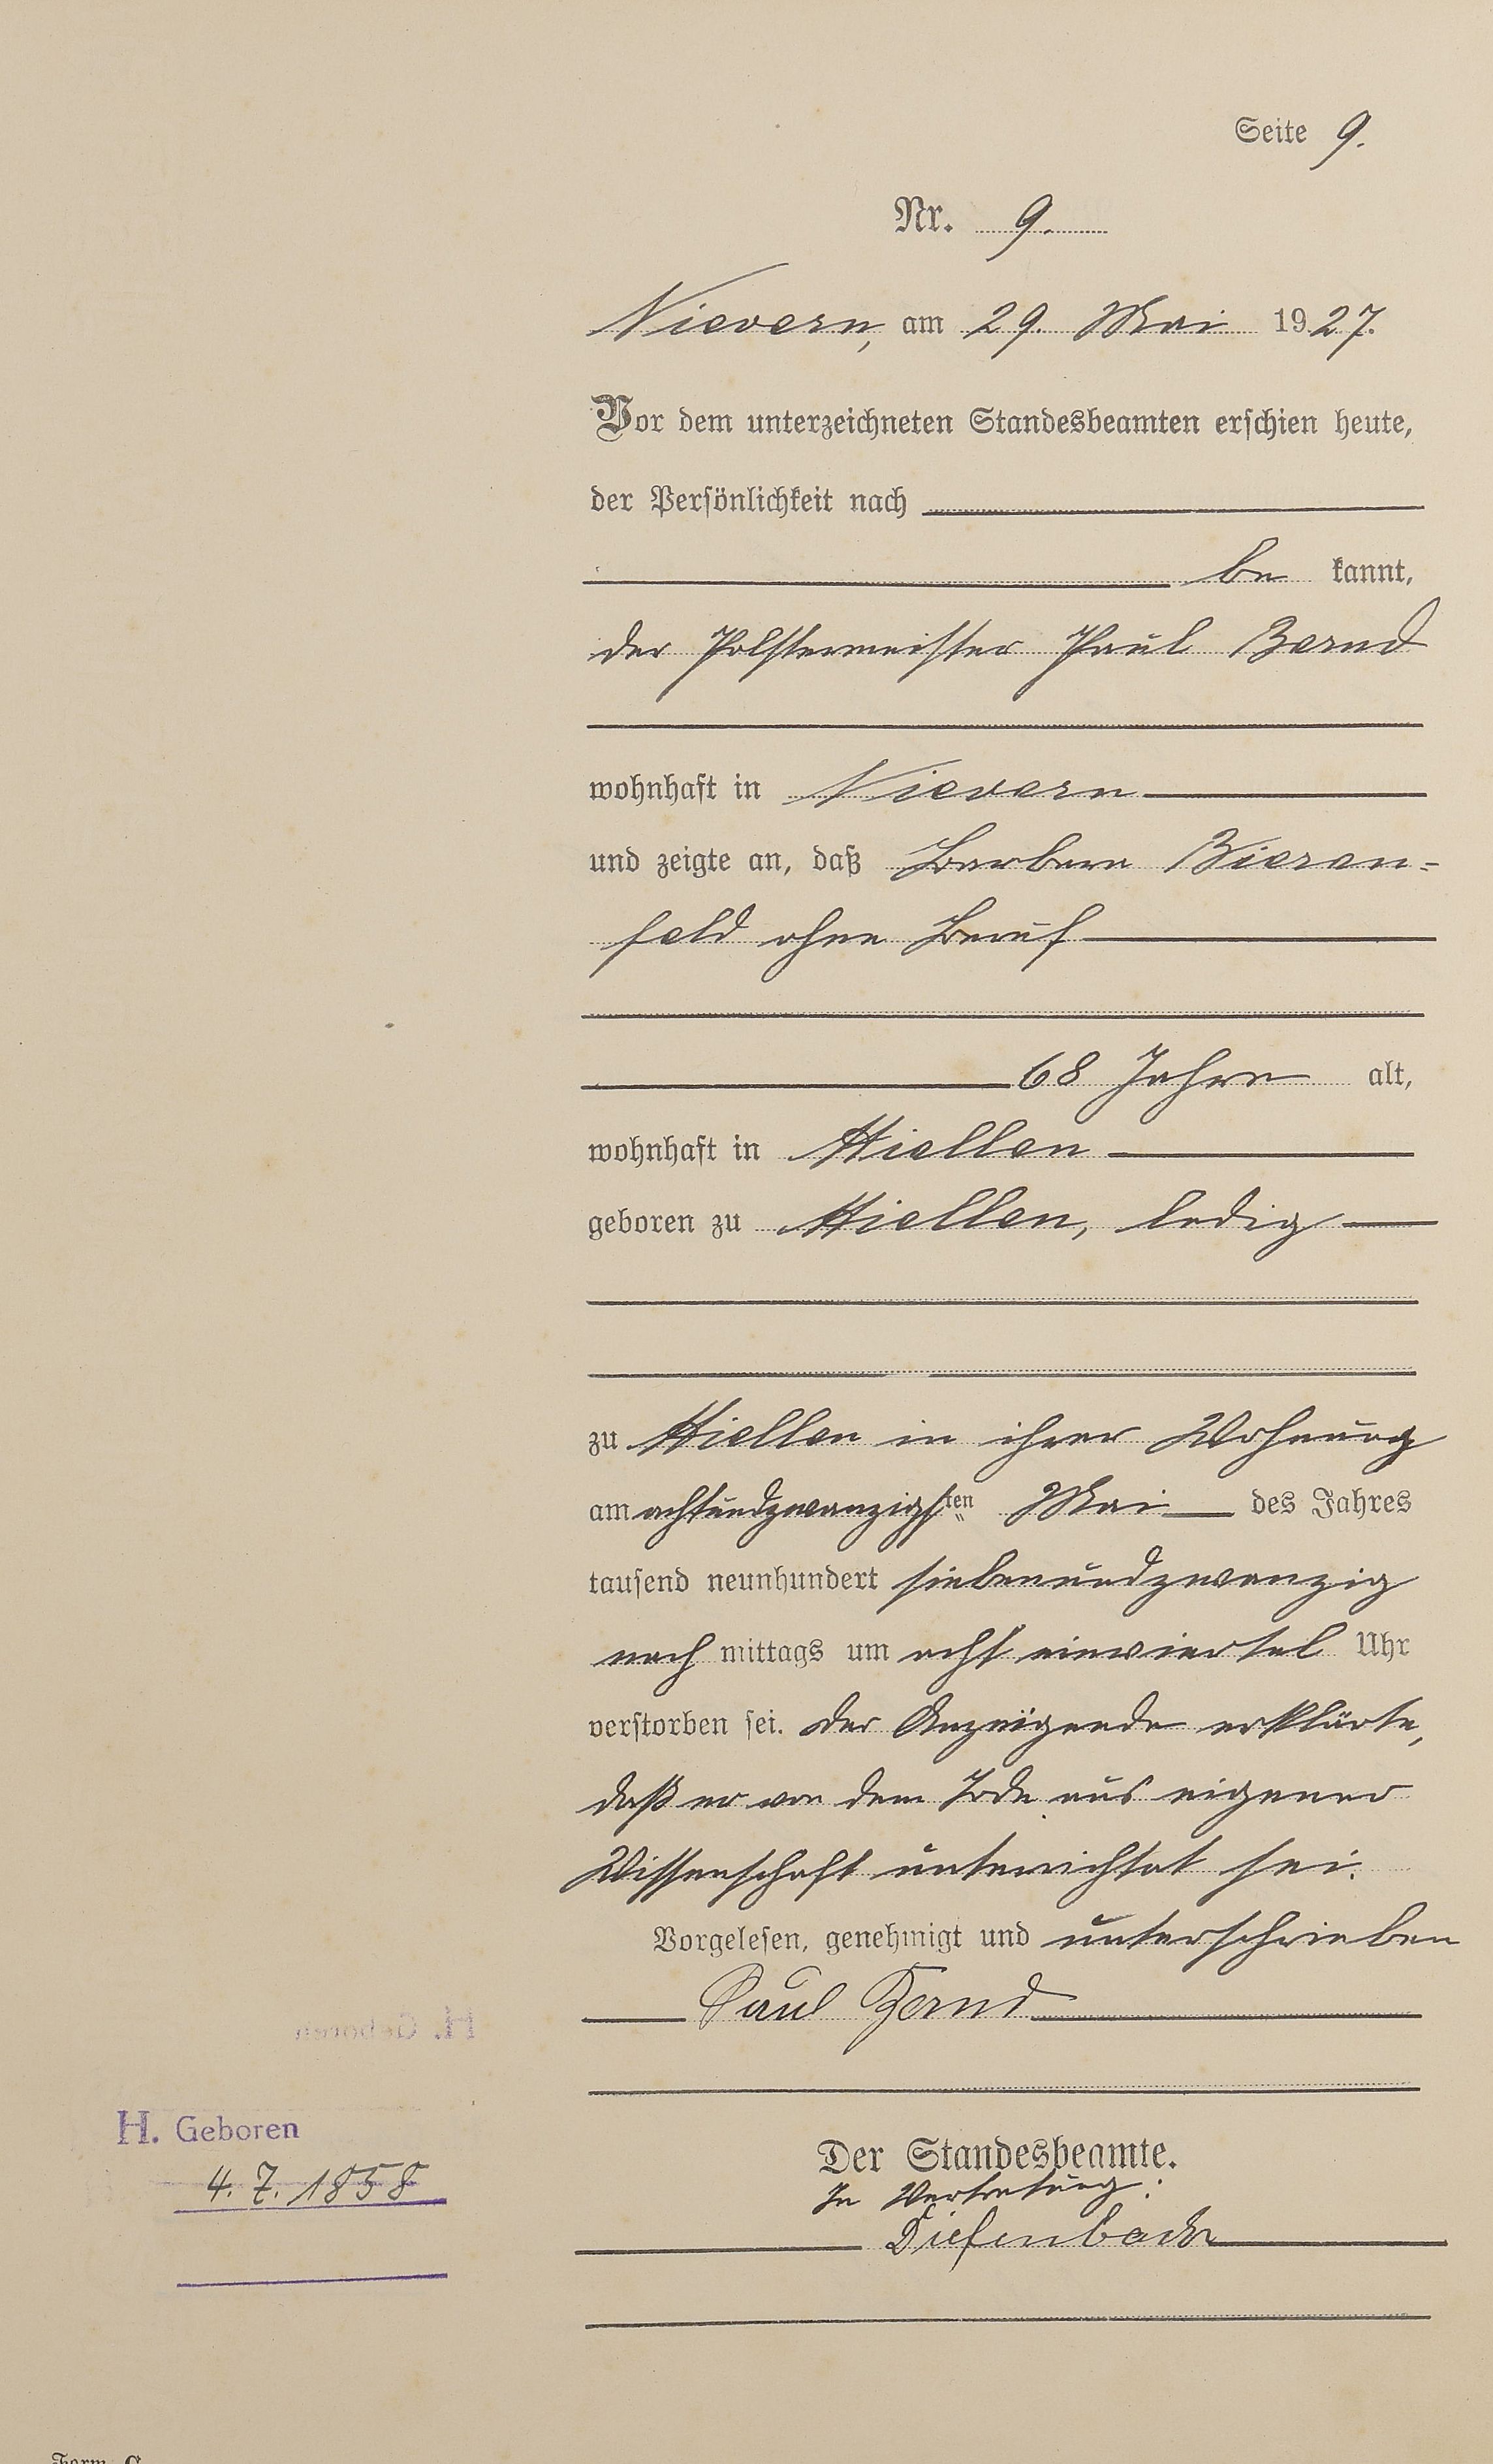 Seite 9.
Nr. 9.
Nievern, am 29. Mai 1927.
Vor dem unterzeichneten Standesbeamten erschien heute,
der Persönlichkeit nach
be kannt,
der Polstermeister Paul Bernd
wohnhaft in Nievern
und zeigte an, daß Barbara Bieren-
feld ohne Beruf
68 Jahre alt,
wohnhaft in Miellen
geboren zu Miellen, ledig
zu Miellen in ihrer Wohnung
am achtundzwanzigsten Mai des Jahres
tausend neunhundert siebenundzwanzig
nach mittags um acht einviertel Uhr
verstorben sei. Der Anzeigende erklärte,
daß er von dem Tode aus eigener
Wissenschaft unterrichtet sei.
Vorgelesen, genehmigt und unterschrieben
Paul Bernd
H. Geboren
H. Geboren
4. 7. 1858
Der Standesbeamte.
In Vertretung:
Diefenbach
Form. C